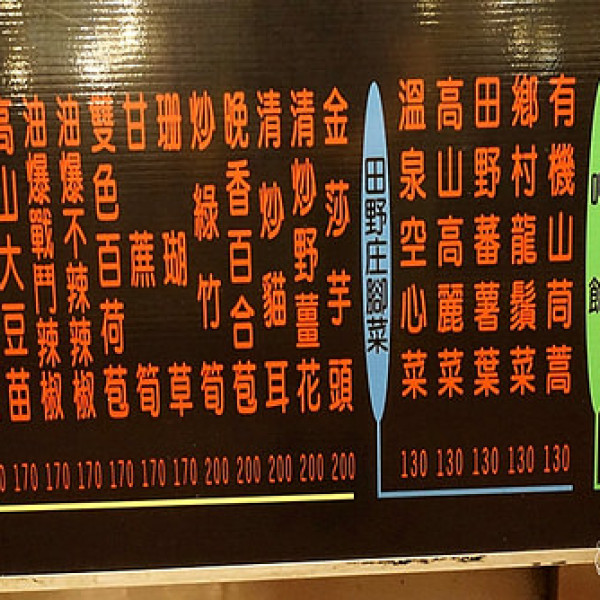 有機山茼蒿 130
鄉村龍鬚菜 130
田野蕃薯葉 130
高山高麗菜 130
溫泉空心菜 130
田野庄腳菜
金莎芋頭 200
清炒野薑花 200
清炒貓耳 200
晚香百合苞 200
炒綠竹筍 200
珊瑚草 170
甘蔗筍 170
雙色百荷苞 170
油爆不辣辣椒 170
油爆戰鬥辣椒 170
高山大豆苗